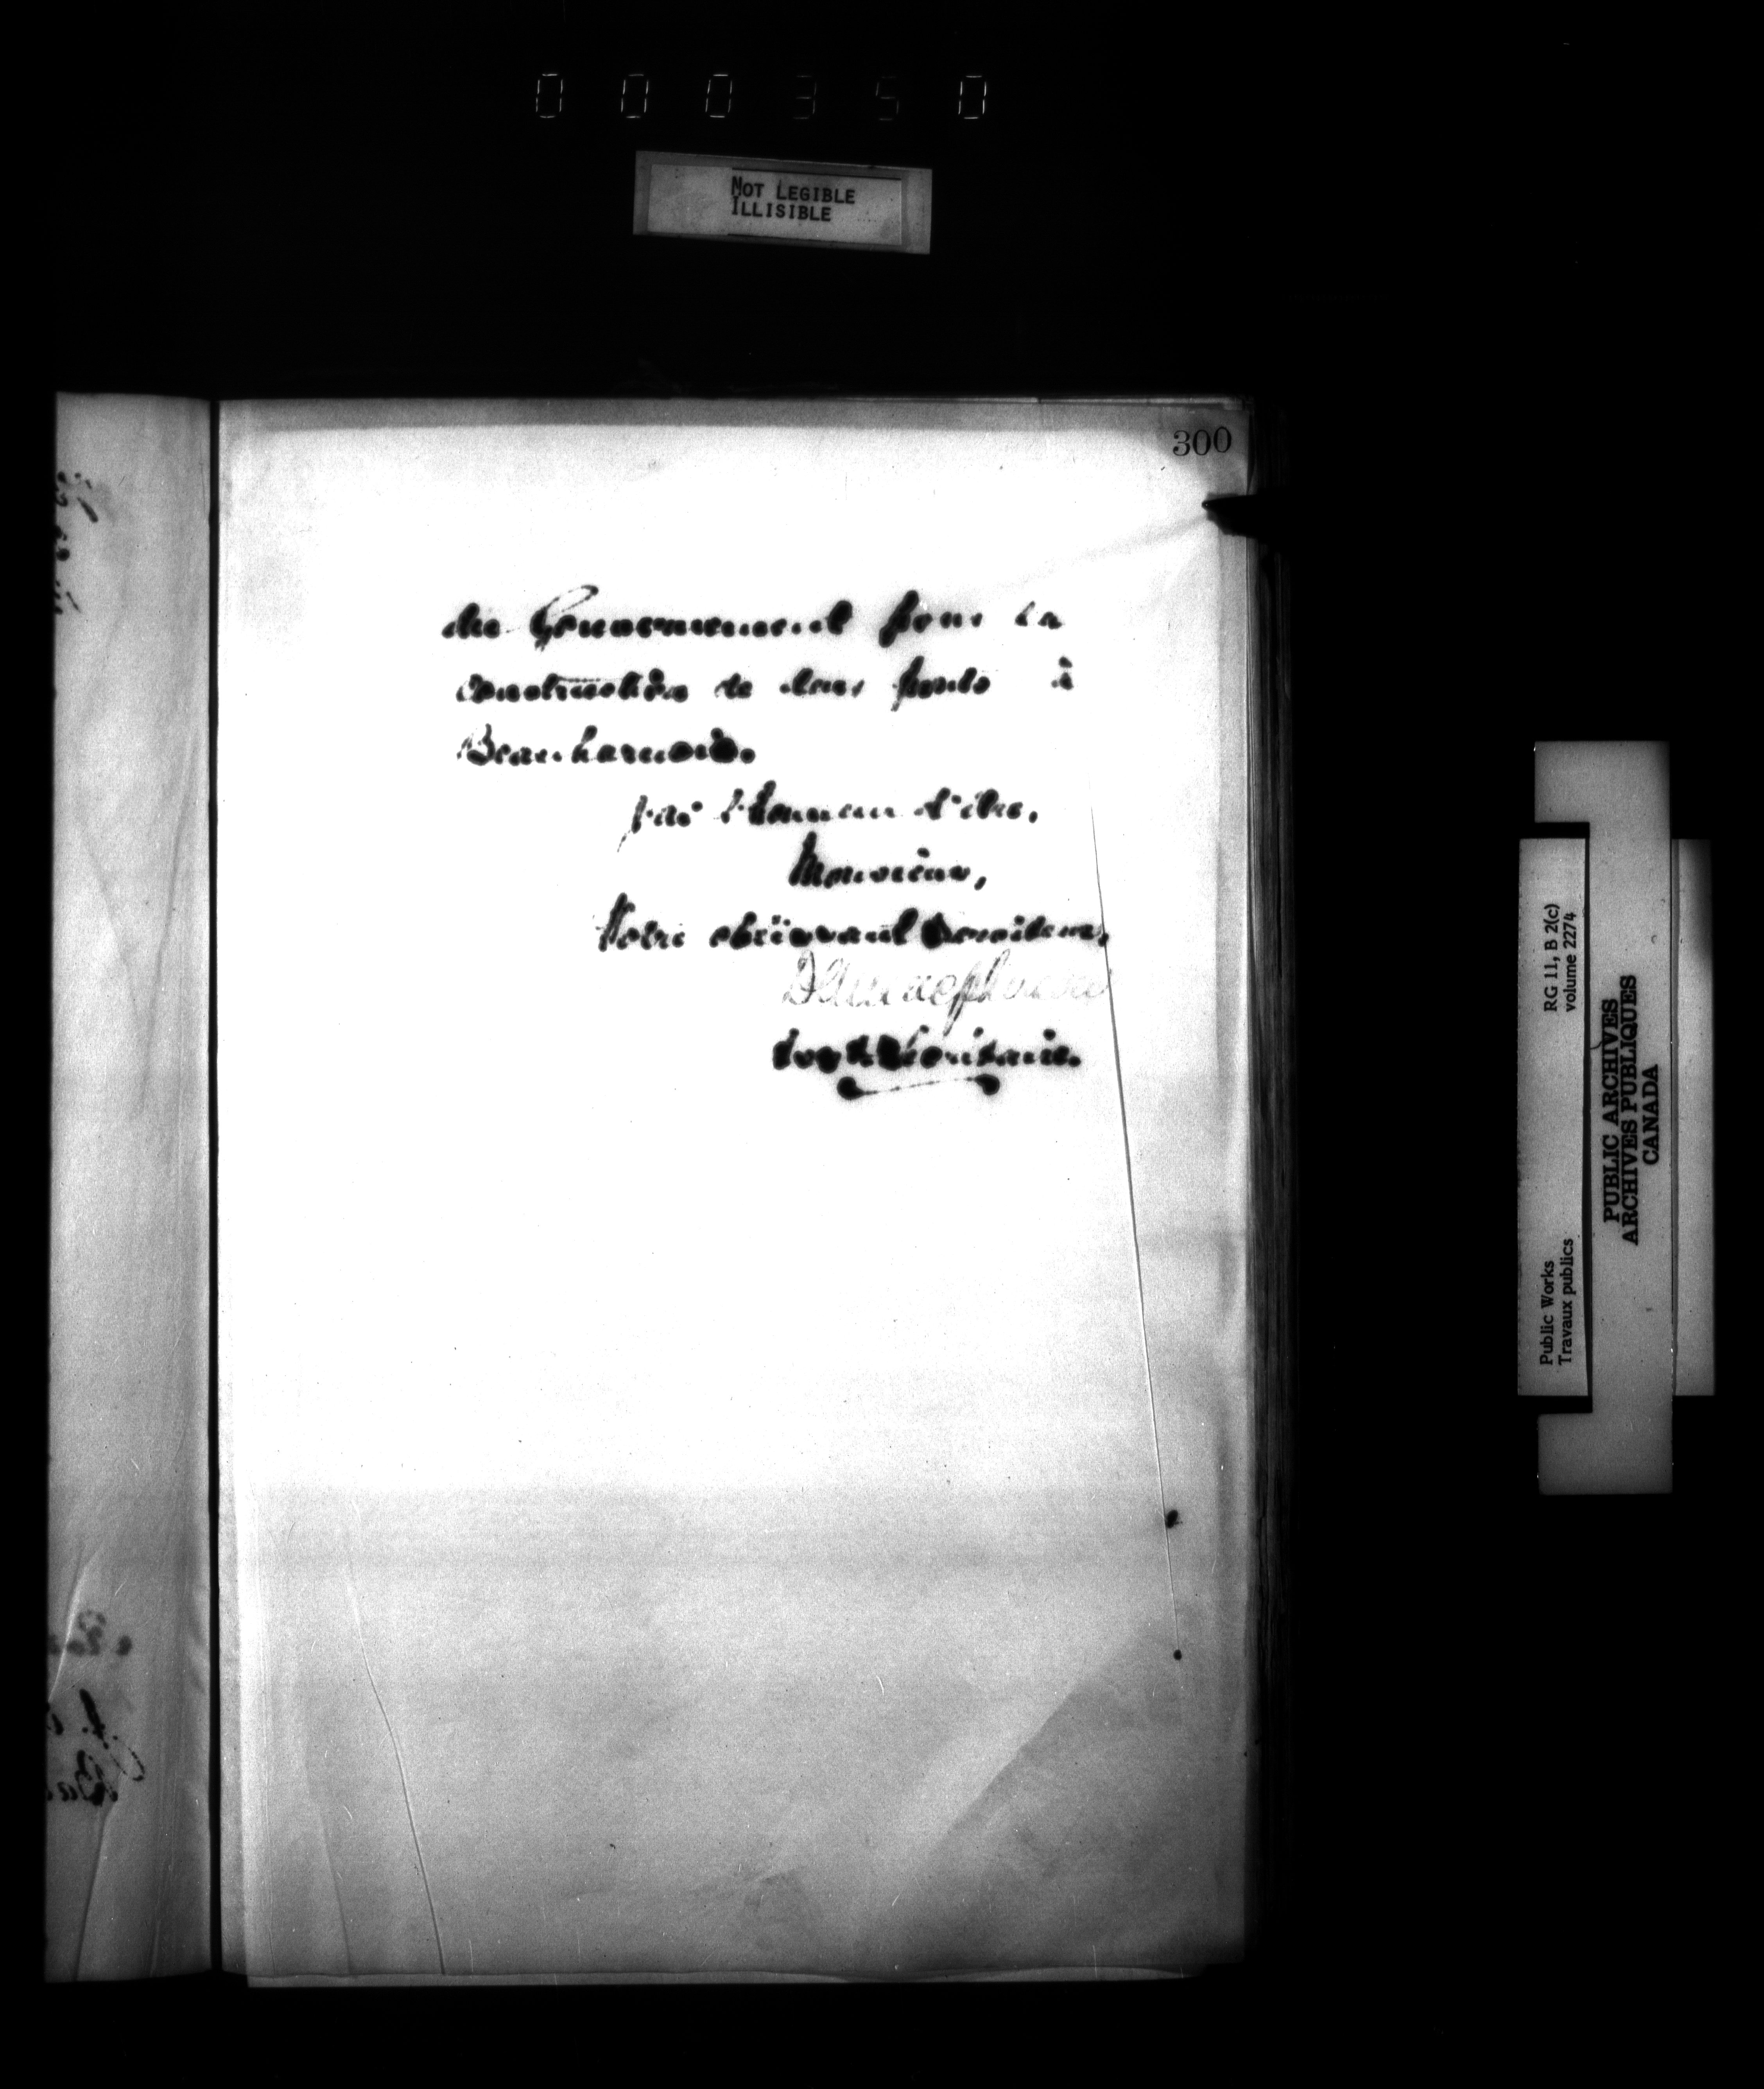 000350
NOT LEGIBLE
ILLISIBLE
300
du Gouvernement pour la
construction de deux ponts à
Beauharnois.
J'ai l'honneur d'être,
Monsieur,
Votre obéissant Serviteur,
Secrétaire.
RG 11, B 2(c)
volume 2274
Public Works
Travaux publics
PUBLIC ARCHIVES
ARCHIVES PUBLIQUES
CANADA